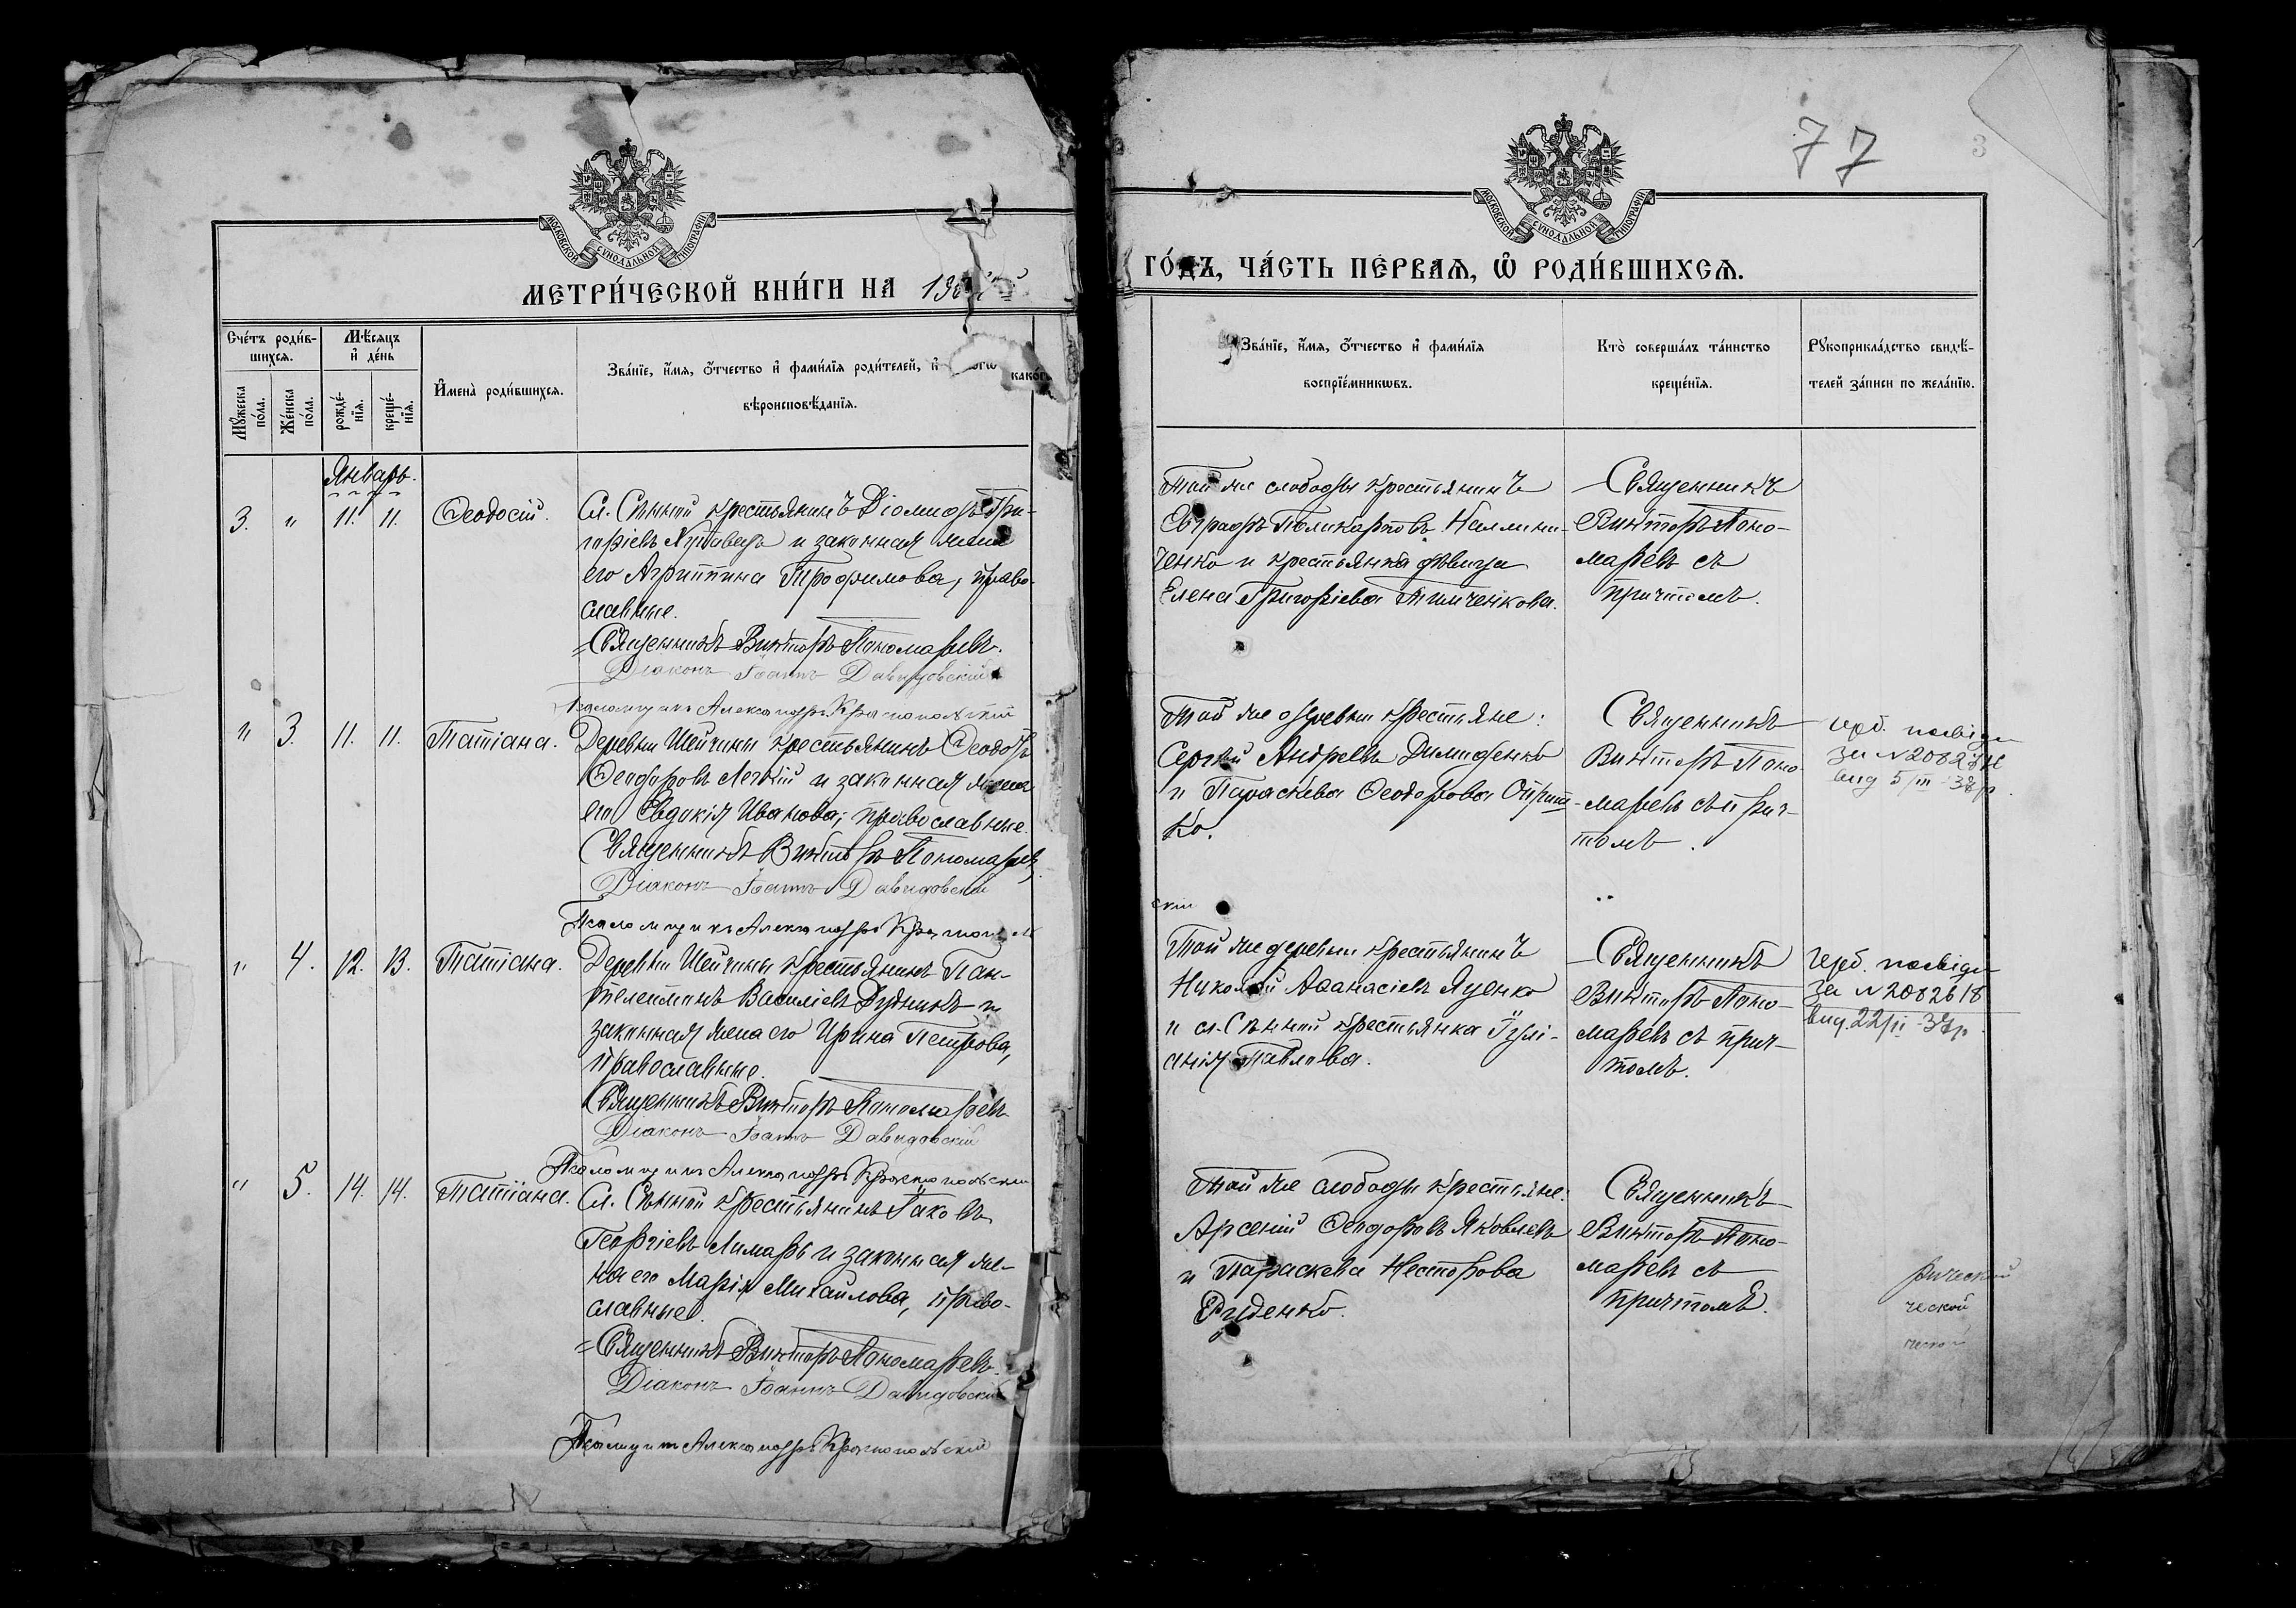 МОСКОВСКОЙ СУНОДАЛЬНОЙ ТИПОГРАФІИ
МЕТРИ́ЧЕСКОЙ КНИ́ГИ НА
Сче́тъ роди́в-
шихсѧ.
Мѣ́сѧцъ
и҆ де́нь
Мꙋ́жеска
по́ла.
Же́нска
по́ла.
рожде́-
нїѧ.
креще́-
нїѧ.
И҆мена̀ роди́вшихсѧ.
Зва́нїе, и҆́мѧ, ѻ҆́тчество и҆ фами́лїѧ роди́телей, и҆ како́гѡ
вѣроисповѣ́данїѧ.
Январь.
3. " 11. 11. Ѳеодосій.
Сл. Сѣнной крестьянинъ Діомидъ Гри-
горіевъ и законная жена
его Агриппина Трофимова, право-
славные.
Священникъ Викторъ Пономаревъ.
Діаконъ Іоаннъ Давидовскій
Псаломщикъ Александръ Краснопольскій
" 3. 11. 11. Татіана.
Деревни Шейчины крестьянинъ Ѳеодоръ
Ѳеодоровъ Легкій и законная жена
его Евдокія Иванова, православные.
Священникъ Викторъ Пономаревъ.
Діаконъ Іоаннъ Давидовскій
Псаломщикъ Александръ Краснополь
" 4. 12. 13. Татіана.
Деревни Шейчины крестьянинъ Пан-
телеимонъ Василіевъ Дудникъ и
законная жена его Ирина Петрова,
православные.
Священникъ Викторъ Пономаревъ
Діаконъ Іоаннъ Давидовскій
Псаломщикъ Александръ Краснопольскій
" 5. 14. 14. Татіана.
Сл. Сѣнной крестьянинъ Іаковъ
Георгіевъ Лимарь и законная же-
на его Марія Михайлова, право-
славные.
Священникъ Викторъ Пономаревъ.
Діаконъ Іоаннъ Давидовскій
Псаломщикъ Александръ Краснопольскій
77
3
МОСКОВСКОЙ СУНОДАЛЬНОЙ ТИПОГРАФІИ
ГО́ДЪ, ЧА́СТЬ ПЕ́РВАѦ, Ѡ҆ РОДИ́ВШИХСѦ.
Зва́нїе, и҆́мѧ, ѻ҆́тчество и҆ фами́лїѧ
воспрїе́мникѡвъ.
Кто̀ соверша́лъ та́инство
креще́нїѧ.
Рꙋкоприкла́дство свидѣ́-
телей за́писи по жела́нїю.
Той же слободы крестьянинъ
Евграфъ Поликарповъ Каллини-
ченко и крестьянка дѣвица
Елена Григоріева Тимченкова.
Священникъ
Викторъ Поно-
маревъ съ
причтомъ.
Той же деревни крестьяне:
Сергѣй Андреевъ Дилиденко
и Параскева Ѳеодорова
ко.
Священникъ
Викторъ Поно-
маревъ съ прич-
томъ.
герб. посвідч
за №
вид 5/III
скій
Той же деревни крестьянинъ
Николай Аѳанасіевъ Яценко
и сл. Сѣнной крестьянка Іулі-
анія Павлова.
Священникъ
Викторъ Поно-
маревъ съ прич-
томъ.
герб. посвідч
за № 2082618
вид. 22/II
Той же слободы крестьяне:
Арсеній Ѳеодоровъ Яковлевъ
и Параскева Несторова
Руденко.
Священникъ
Викторъ Поно-
маревъ съ
причтомъ.
ческой